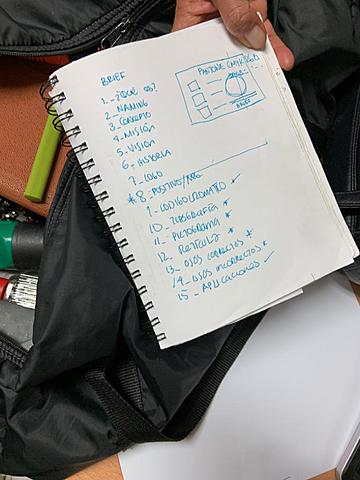 BRIEF
1_ ¿QUÉ ES?
2_ NAMING
3_ CONCEPTO
4_ MISIÓN
5_ VISIÓN
6_ HISTORIA
7_ LOGO
* 8_ POSITIVO/NEG
9_ CÓDIGO CROMÁTICO ✓
10_ TIPOGRAFÍA *
11_ PICTOGRAMA *
12_ RETÍCULA *
13_ USOS CORRECTOS *
14_ USOS INCORRECTOS *
15_ APLICACIONES ✓
PANTONE CMYK RGB